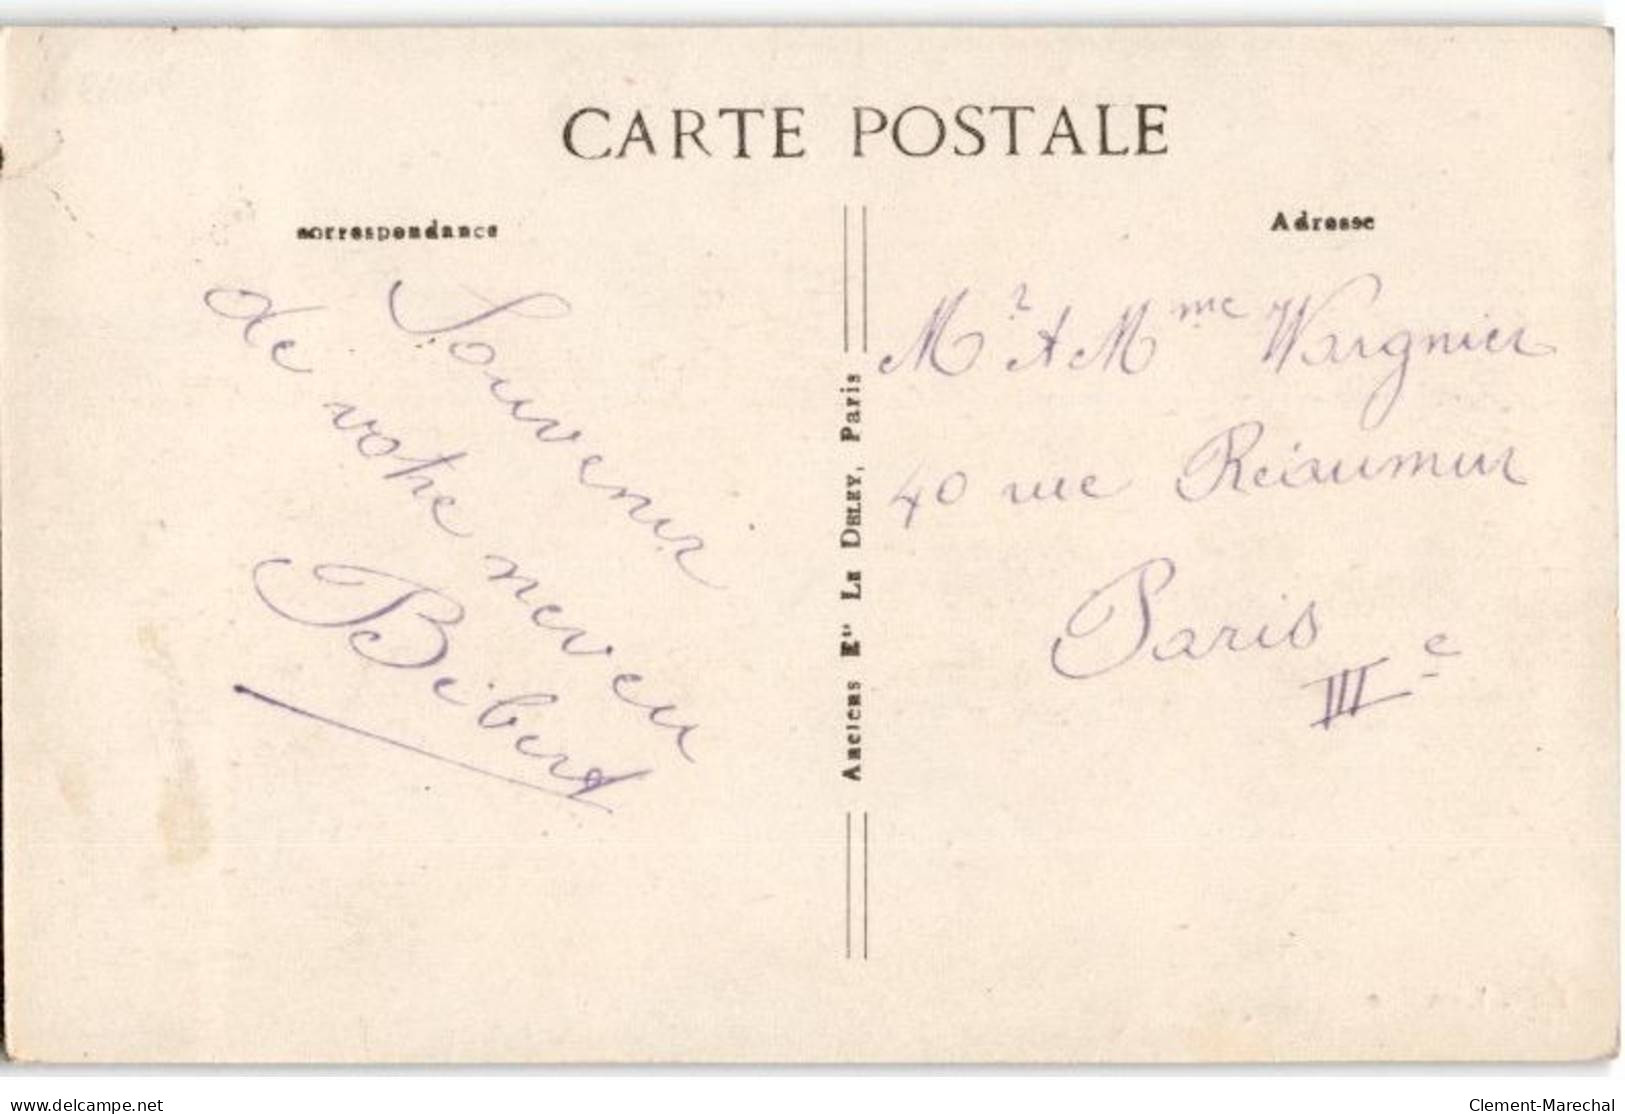 CARTE POSTALE
correspondance
Souvenir
de votre neveu
Bébert
Anciens Ets Le DELEY, Paris
Adresse
Mr & Mme Wargnier
40 rue Réaumur
Paris
IIIe
delcampe.net
Clement-Marechal